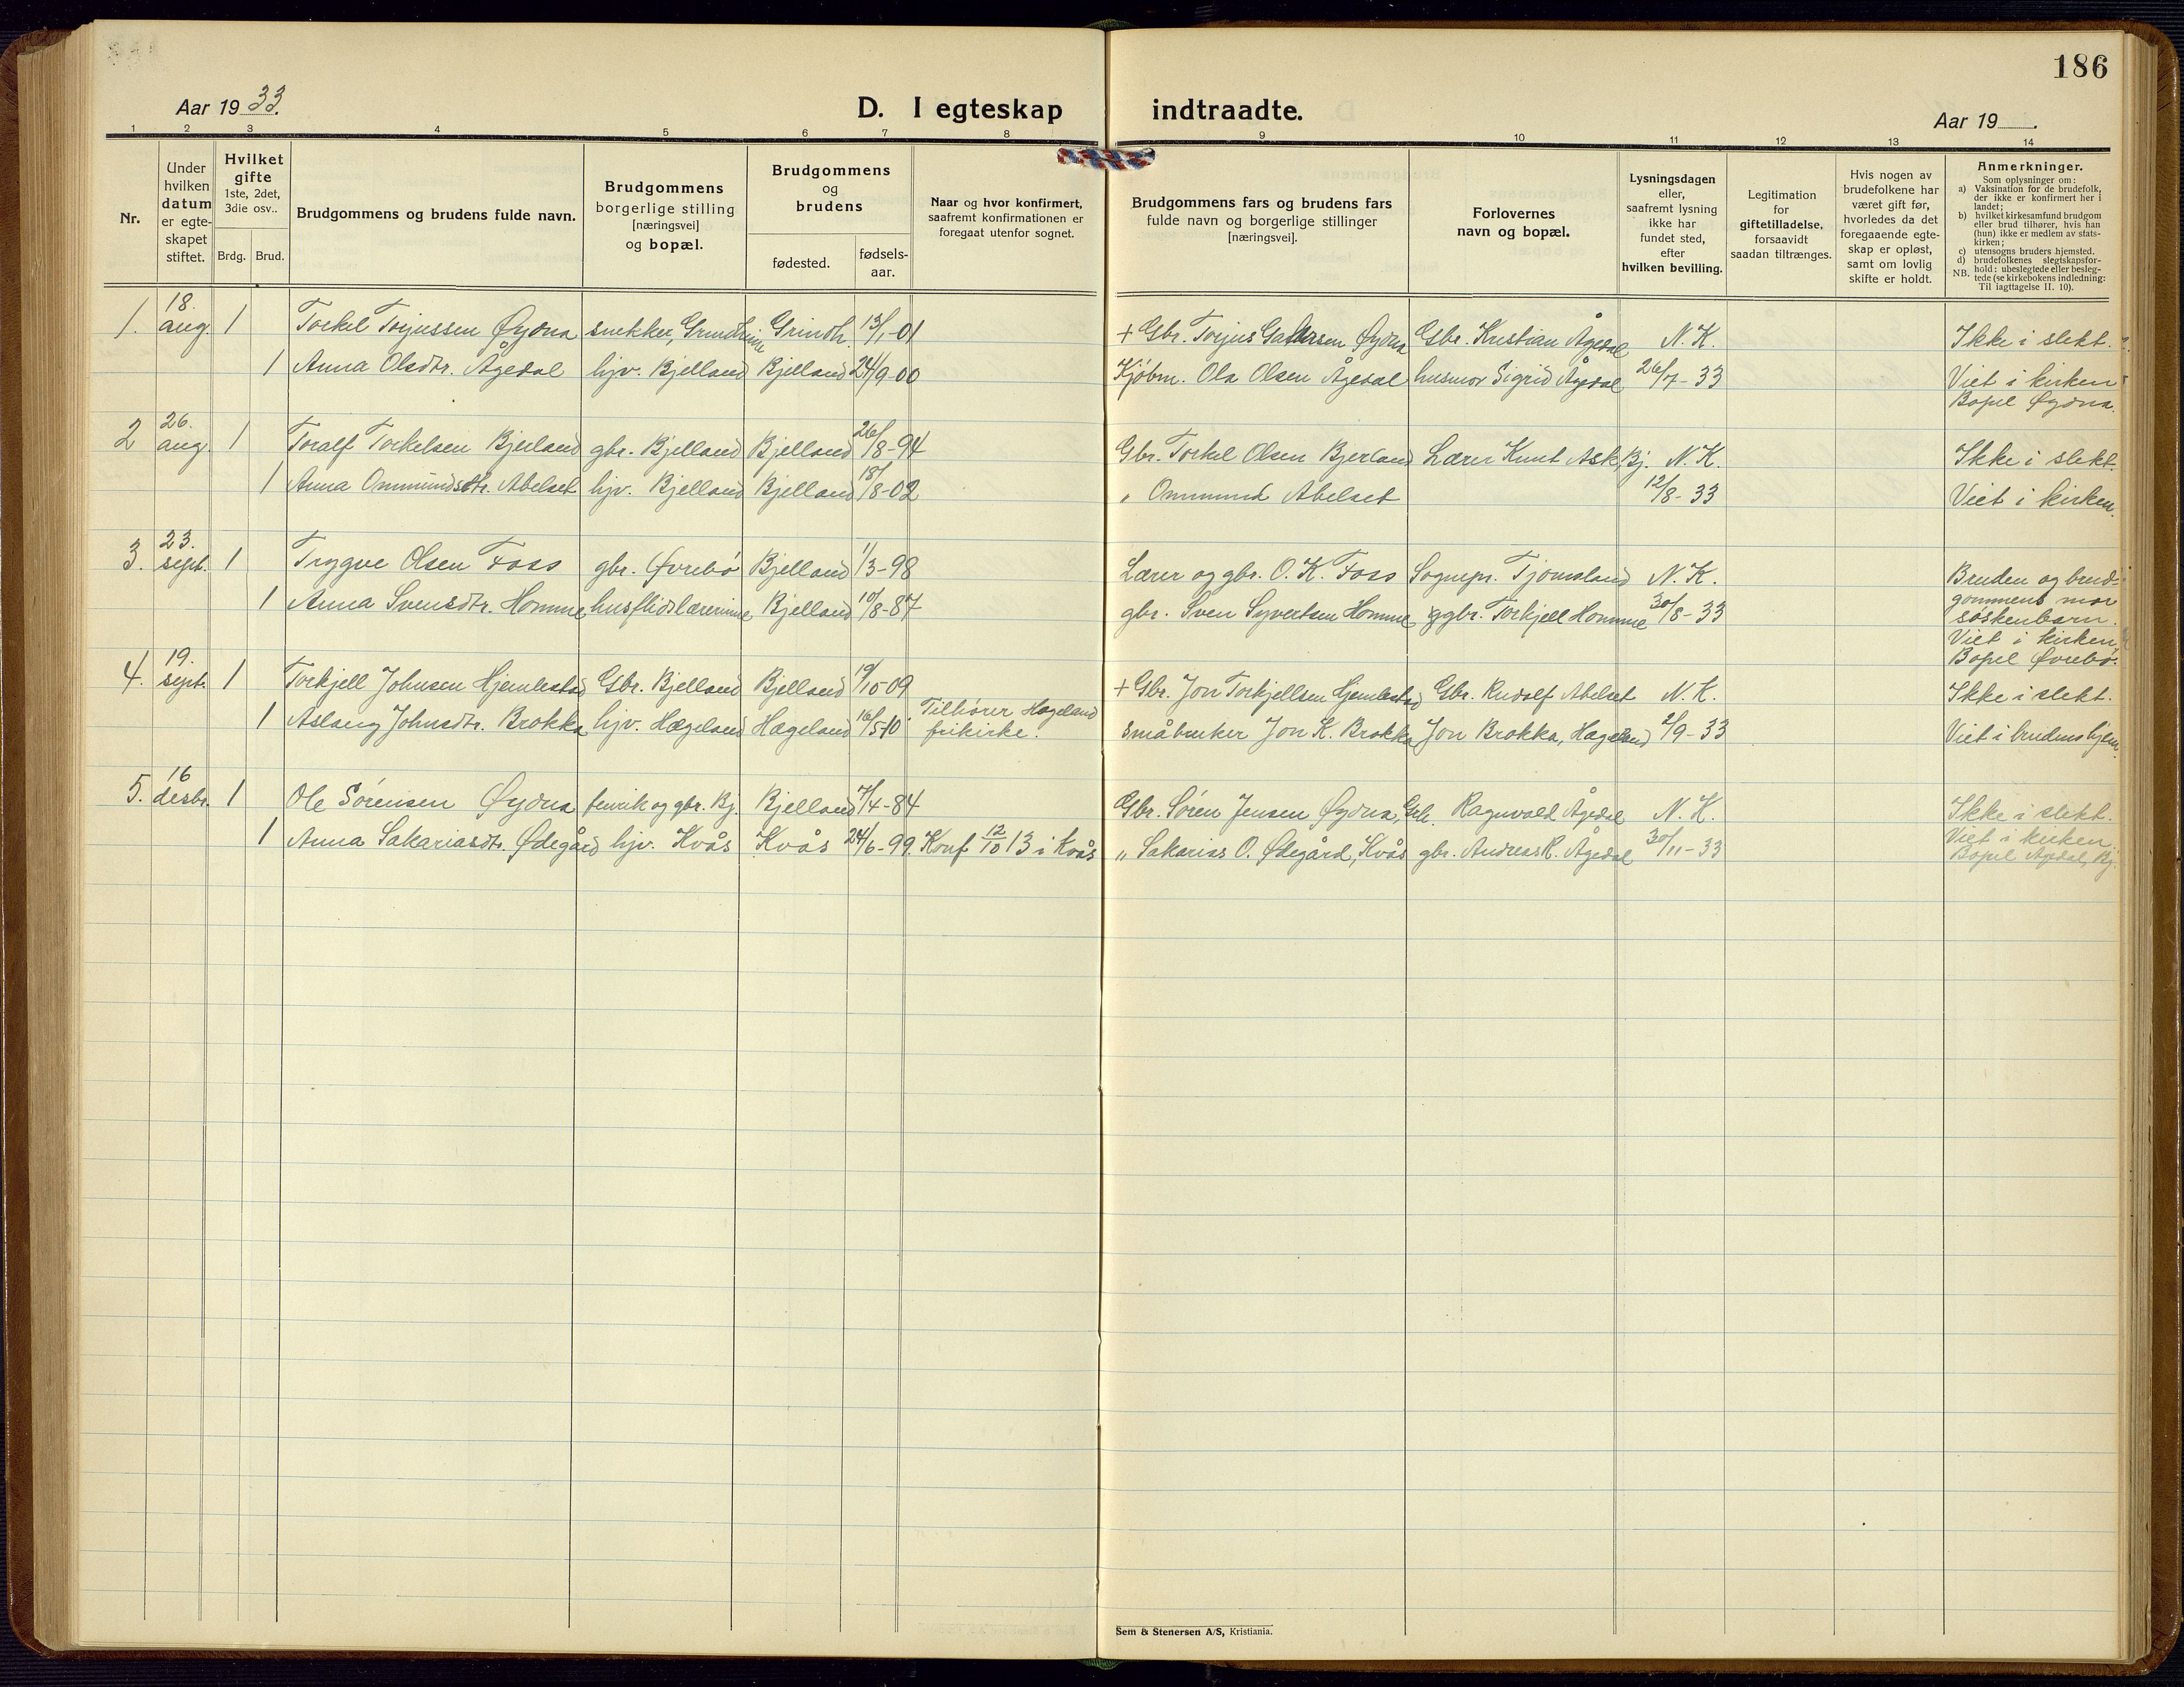 186
Aar 1933.
D. I egteskap indtraadte.
Aar 19
1 2 3 4 5 6 7 8 9 10 11 12 13 14
Nr.
Under hvilken datum er egteskapet stiftet.
Hvilket gifte
1ste, 2det, 3die osv..
Brdg. Brud.
Brudgommens og brudens fulde navn.
Brudgommens
borgerlige stilling
[næringsvei]
og bopæl.
Brudgommens
og
brudens
fødested.
fødsels-
aar.
Naar og hvor konfirmert,
saafremt konfirmationen er
foregaat utenfor sognet.
Brudgommens fars og brudens fars
fulde navn og borgerlige stillinger
[næringsvei].
Forlovernes
navn og bopæl.
Lysningsdagen
eller,
saafremt lysning
ikke har
fundet sted,
efter
hvilken bevilling.
Legitimation
for
giftetilladelse,
forsaavidt
saadan tiltrænges.
Hvis nogen av
brudefolkene har
været gift før,
hvorledes da det
foregaaende egte-
skap er opløst,
samt om lovlig
skifte er holdt.
Anmerkninger.
Som oplysninger om:
a) Vaksination for de brudefolk,
der ikke er konfirmert her i
landet;
b) hvilket kirkesamfund brudgom
eller brud tilhører, hvis han
(hun) ikke er medlem av stats-
kirken;
c) utensogns bruders hjemsted.
d) brudefolkenes slegtskapsfor-
NB. hold: ubeslegtede eller besleg-
tede (se kirkebokens indledning:
Til iagttagelse II. 10).
1. 18. aug. 1 Torkel Torjussen Øydna snekker, Grindheim Grindh. 13/1-01 + Gbr. Torjus Øydna Gbr. Kristian Ågedal N.K. Ikke i slekt.
1 Anna Olsdtr. Ågedal hjv. Bjelland Bjelland 24/9-00 Kjøbm. Ola Olsen Ågedal husmor Sigrid Ågedal 26/7-33 Viet i kirken
Bopel Øydna.
2 26. aug. 1 Toralf Torkelsen Bjerland gbr. Bjelland Bjelland 26/8-94 Gbr. Torkel Olsen Bjerland Lærer Knut Ask, Bj. N.K. Ikke i slekt
1 Anna Ommundsdtr. Abelset hjv. Bjelland Bjelland 18/8-02 " Ommund Abelset 12/8-33 Viet i kirken.
3. 23. sept. 1 Trygve Olsen Foss gbr. Øvrebö Bjelland 1/3-98 Lærer og gbr. O. K. Foss Sognepr. Tjomsland N.K. Bruden og brud-
gommens mor
1 Anna Svensdtr. Homme husflidslærerinne Bjelland 10/8-87 gbr. Sven Syvertsen Homme gbr. Torkjell Homme 30/8-33 söskenbarn.
Viet i kirken,
Bopel Øvrebö.
4. 19. sept. 1 Torkjell Johnsen Hjemlestad Gbr. Bjelland Bjelland 19/10-09 + Gbr. Jon Torkjellsen Hjemlestad Gbr. Rudolf Abelset N.K. Ikke i slekt.
1 Aslaug Johnsdtr. Brokka hjv. Hægeland Hægeland 16/5-10 Tilhörer Hægeland
frikirke. Småbruker Jon K. Brokka Jon Brokka, Hægeland 2/9-33 Viet i brudens hjem.
5. 16 desbr. 1 Ole Sörensen Øydna fenrik og gbr. Bj. Bjelland 7/4-84 Gbr. Søren Jensen Øydna, Ragnvald Ågedal N.K. Ikke i slekt.
1 Anna Sakariasdtr. Ødegård hjv. Kvås Kvås 24/6-99 Konf 12/10 13 i Kvås " Sakarias O. Ødegård, Kvås gbr. Andreas R. Ågedal 30/11-33 Viet i kirken
Bopel Ågedal, Bj.
Sem & Stenersen A/S, Kristiania.